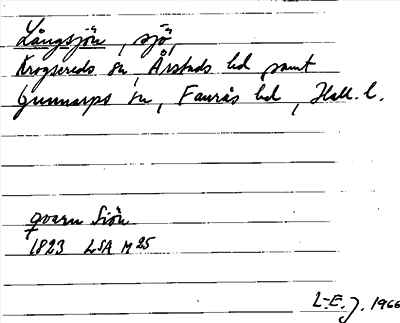 Långsjön, sjö,
Krogsereds sn, Årstads hd samt
Gunnarps sn, Faurås hd, Hall. l.
qvarn Siön
1823 LSA M 25
L-E. J. 1966